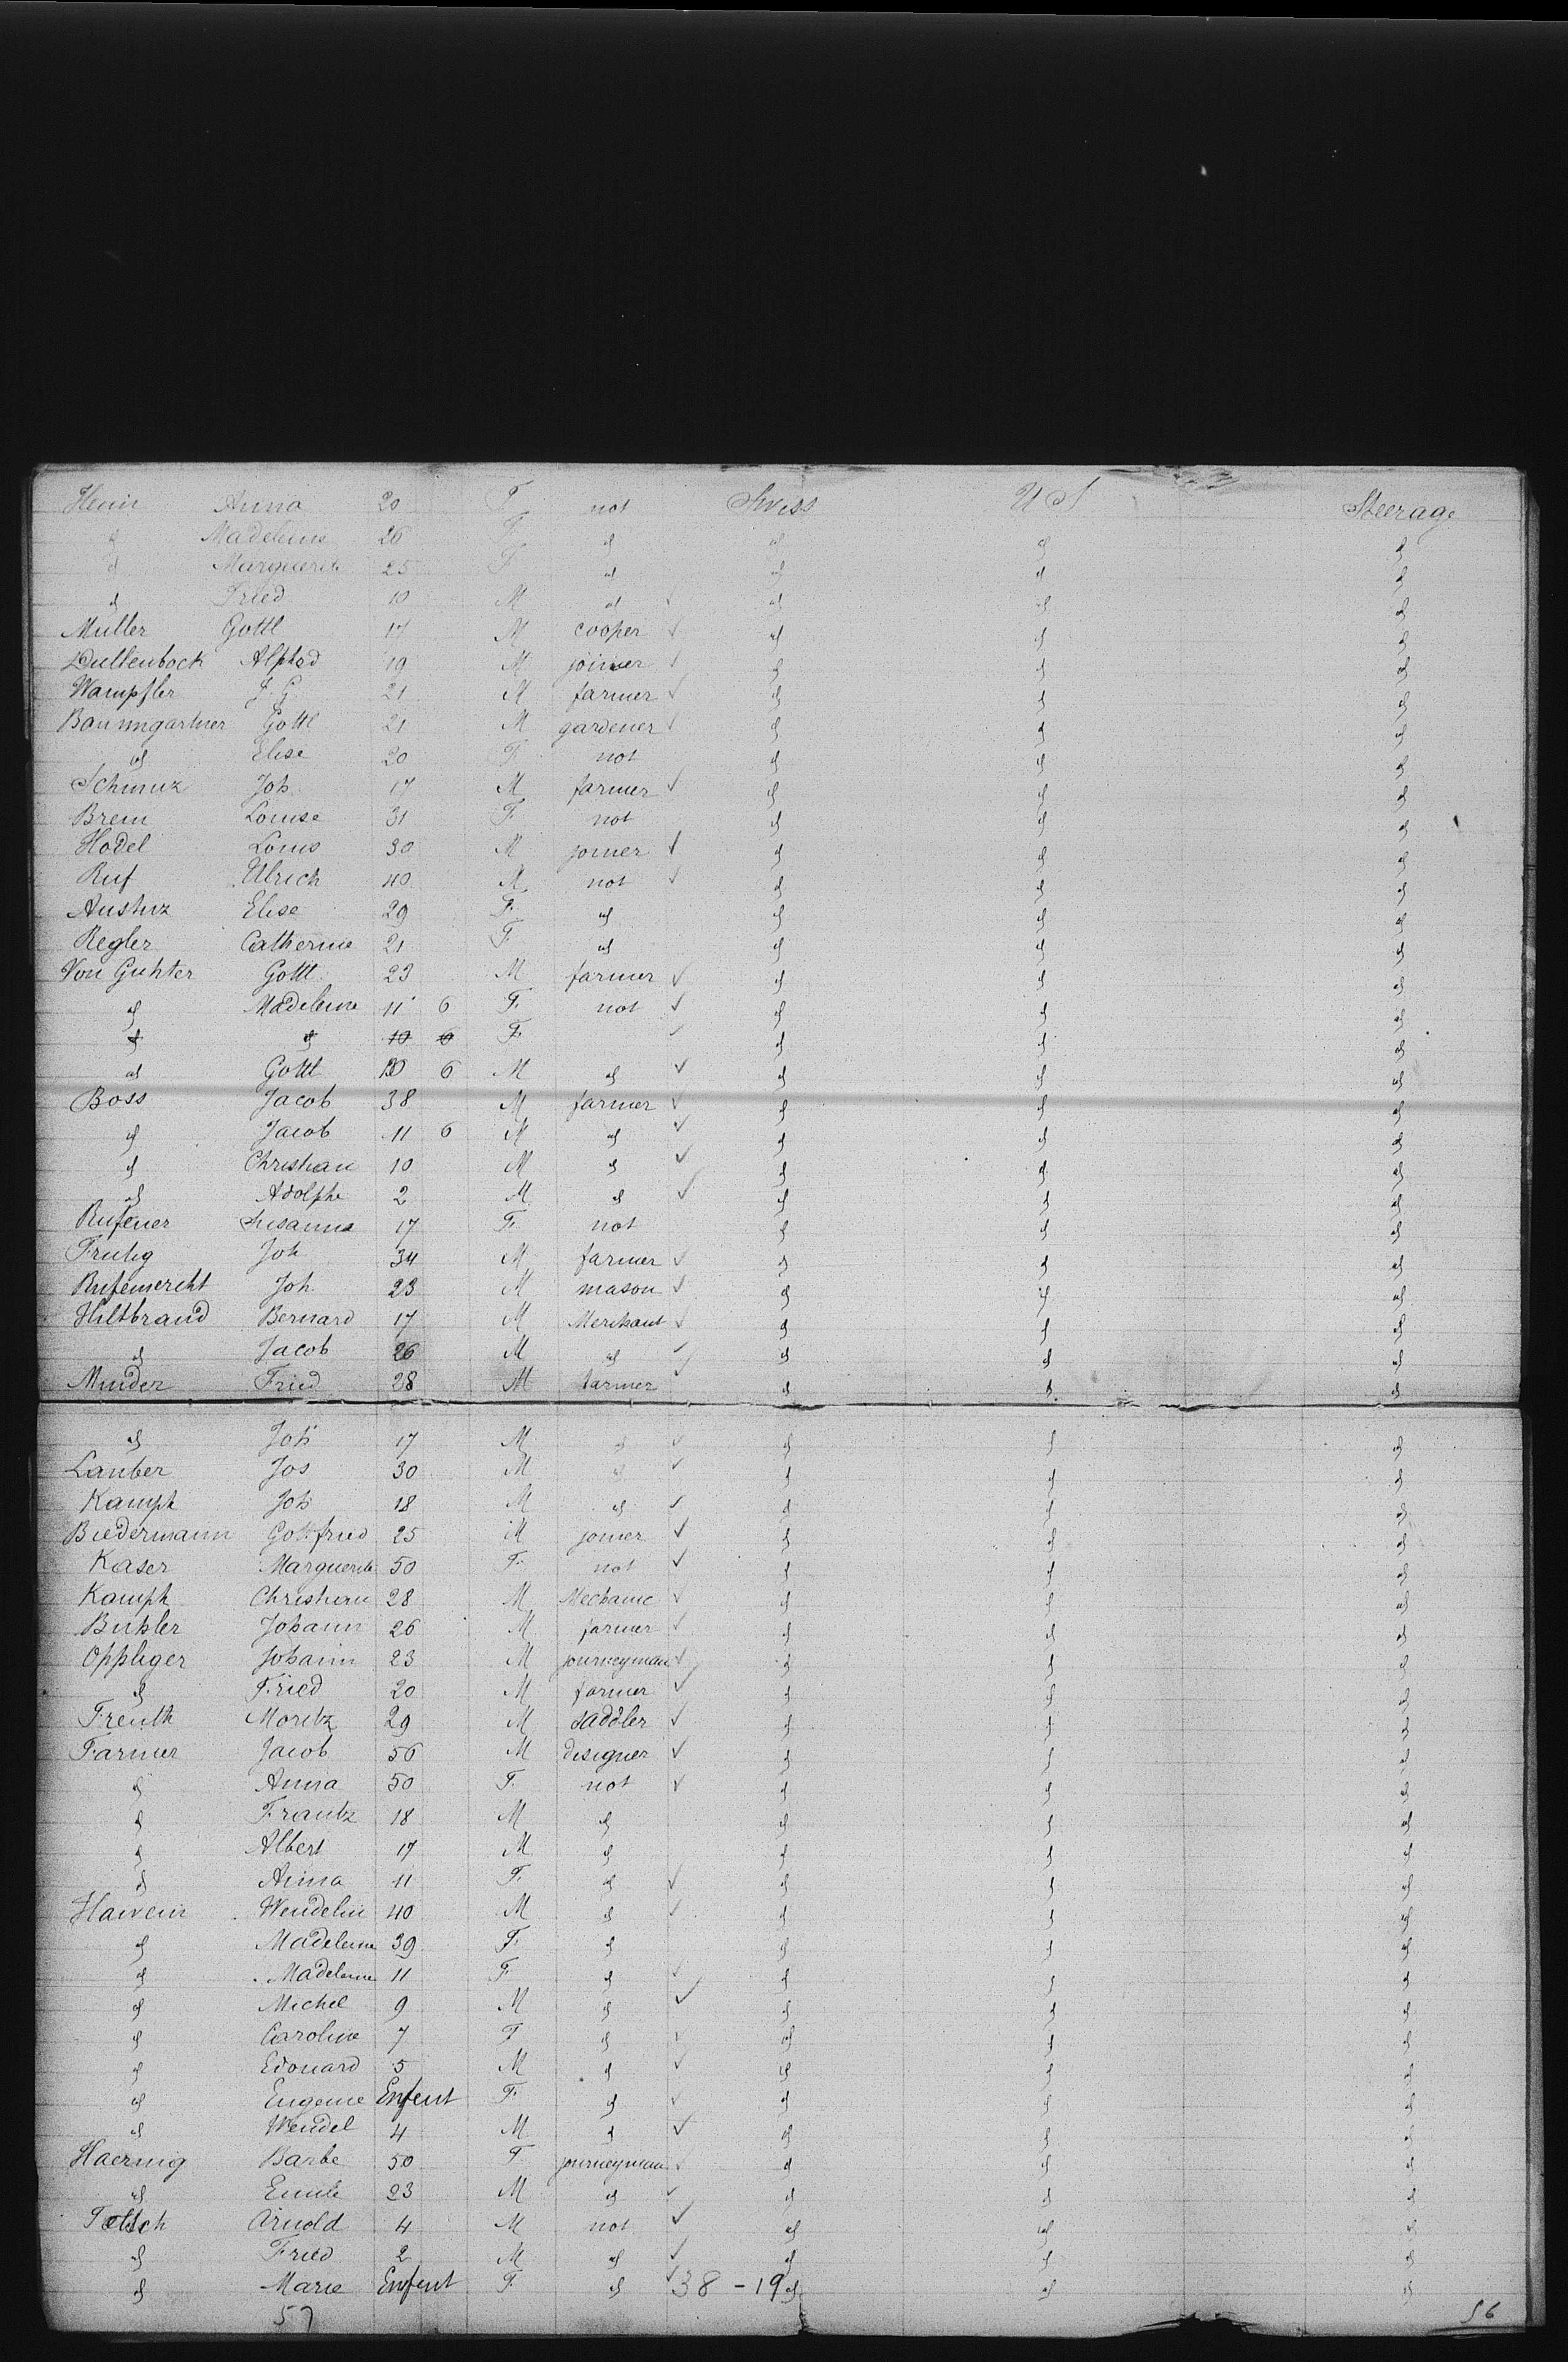 Henin Anna 20 F not Swiss U S Steerage
" Madeleine 26 F " " " "
" Marguerite 25 F " " " "
" Fried 10 M " " " "
Muller Gottl 17 M cooper " " "
Dullenbock Alphod 19 M joiner " " "
Wampfler J. G. 21 M farmer " " "
Baumgartner Gottl 21 M gardener " " "
" Elise 20 F not " " "
Schmuz Joh 17 M farmer " " "
Brem Louise 31 F not " " "
Hodel Louis 30 M joiner " " "
Ruf Ulrich 40 M not " " "
Elise 29 F " " " "
Regler Catherine 21 F " " " "
Von Guhter Gottl 23 M farmer " " "
" Madeleine 11 6 F not " " "
" " 10 6 F " " "
" Gottl 10 6 M " " " "
Boss Jacob 38 M farmer " " "
" Jacob 11 6 M " " " "
" Christian 10 M " " " "
" Adolphe 2 M " " " "
Rufener Susanna 17 F not " " "
Frutig Joh 34 M farmer " " "
Rufenercht Joh 23 M mason " " "
Hiltbrand Bernard 17 M Merchant " " "
" Jacob 26 M " " " "
Minder Fried 28 M farmer " " "
" Joh 17 M " " " "
Lauber Jos 30 M " " " "
Kamph Joh 18 M " " " "
Biedermann Gottfried 25 M joiner " " "
Kaser Marguerite 50 F not " " "
Kamph Christian 28 M Mechanic " " "
Buhler Johann 26 M farmer " " "
Oppliger Johann 23 M journeyman " " "
" Fried 20 M farmer " " "
Freuth Moritz 29 M saddler " " "
Farner Jacob 56 M designer " " "
" Anna 50 F not " " "
" Frantz 18 M " " " "
" Albert 17 M " " " "
" Anna 11 F " " " "
Hawein Wendelin 40 M " " " "
" Madeleine 39 F " " " "
" Madeleine 11 F " " " "
" Michel 9 M " " " "
" Caroline 7 F " " " "
" Edouard 5 M " " " "
" Eugenie Enfent F " " " "
" Wendel 4 M " " " "
Haernig Barbe 50 F journeyman " " "
" Emile 23 M " " " "
Totsch Arnold 4 M not " " "
" Fried 2 M " " " "
" Marie Enfent F " 38 - 19 " " "
57 56